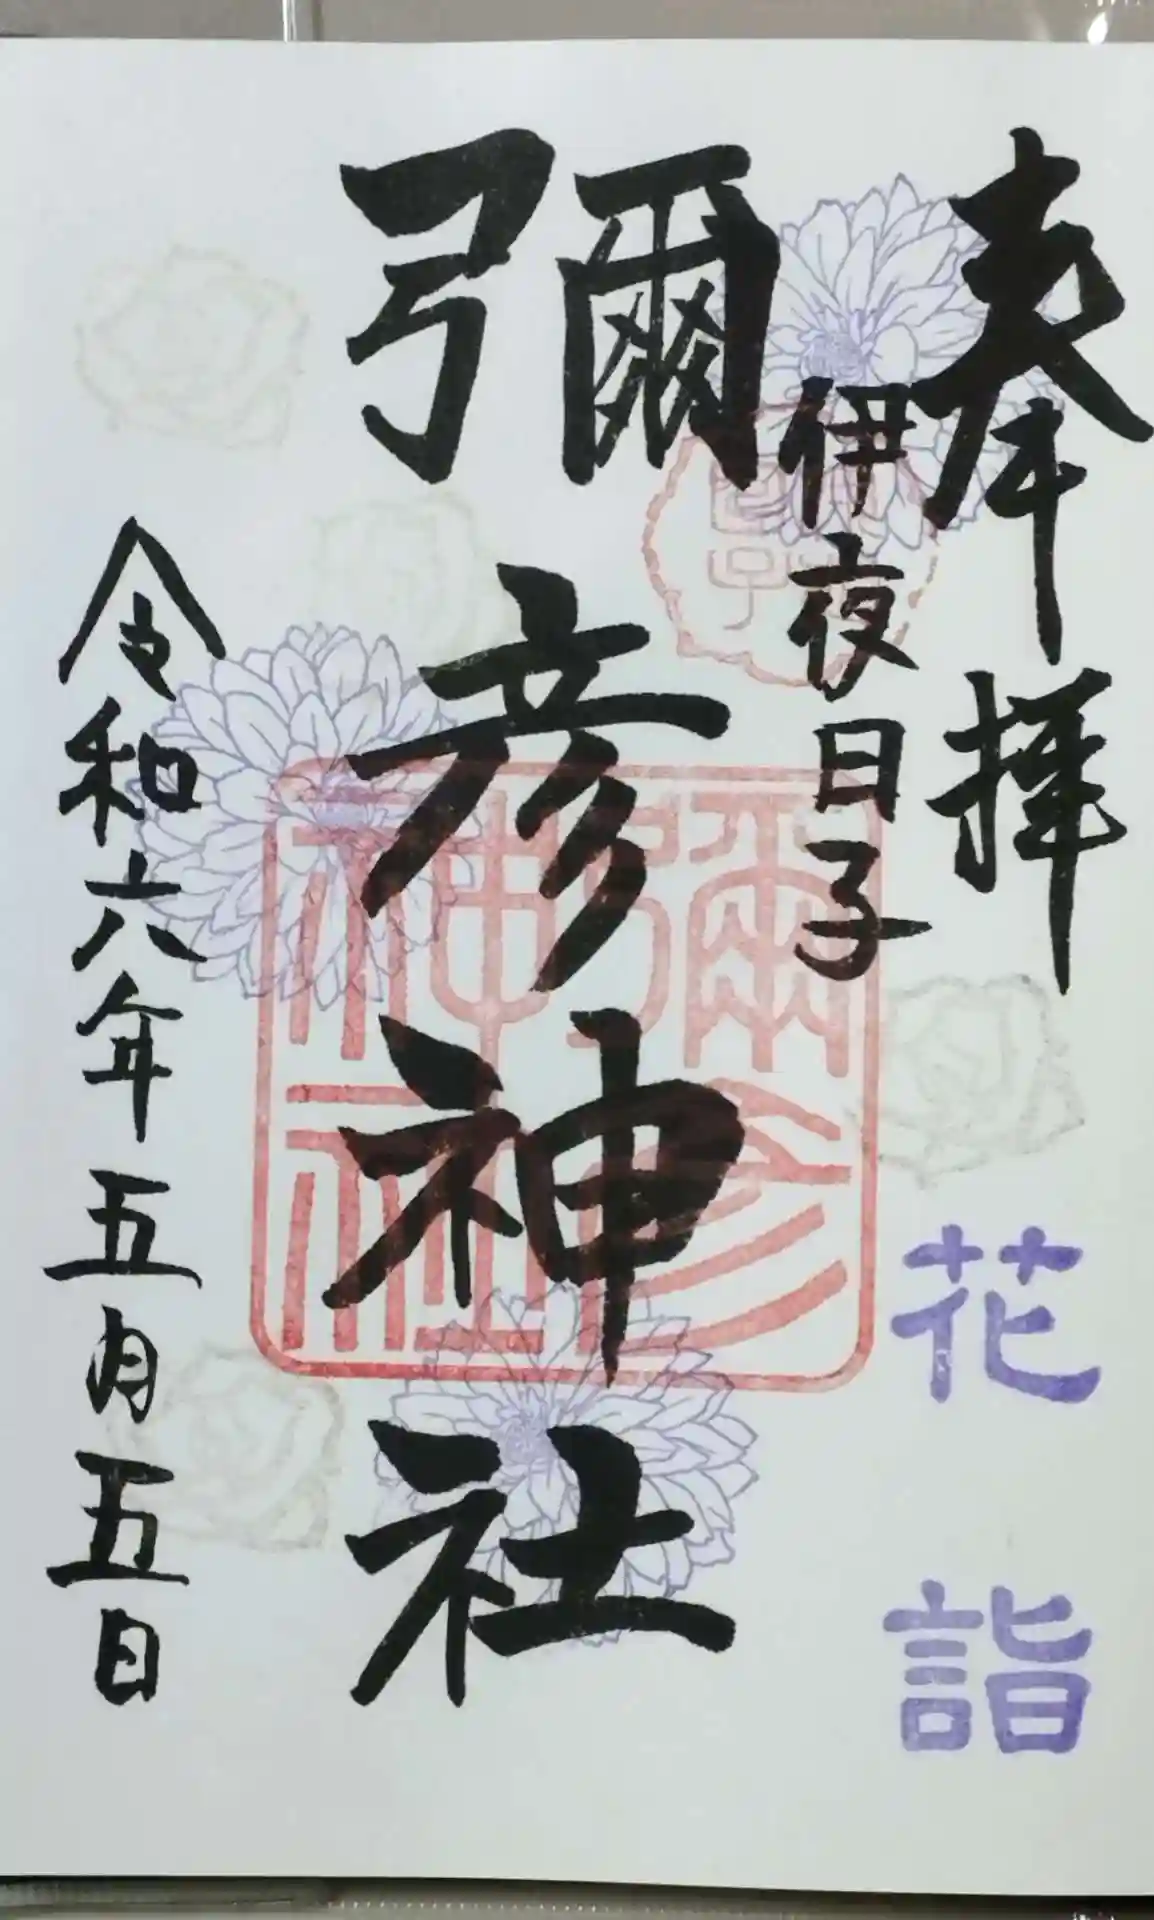 奉拝
伊夜日子
彌彦神社
令和六年五月五日
花詣
彌彦神社